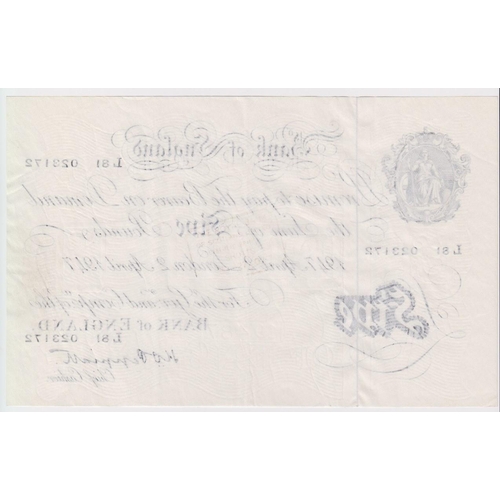 Bank of England
L81 023172
I Promise to pay the Bearer on Demand
the Sum of Five Pounds
L81 023172
1947 April 2 London 2 April 1947
For the Govr. and Compa. of the
BANK of ENGLAND.
Five
L81 023172
Chief Cashier